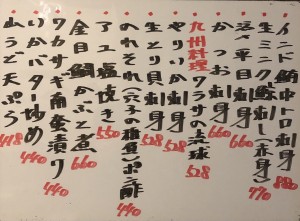 インド鮪中トロ刺身 880
生ミンク鯨刺し(赤身) 770
活〆平目刺身 660
かつお刺身 660
九州料理 クラサの琉球 528
やりいか刺身 528
生とり貝刺身 528
のれそれ(穴子の稚魚)ポン酢 440
アユ塩焼き 550
金目鯛かぶと煮 660
ワカサギ南蛮漬け 440
いかバター炒め 440
山うど天ぷら 418